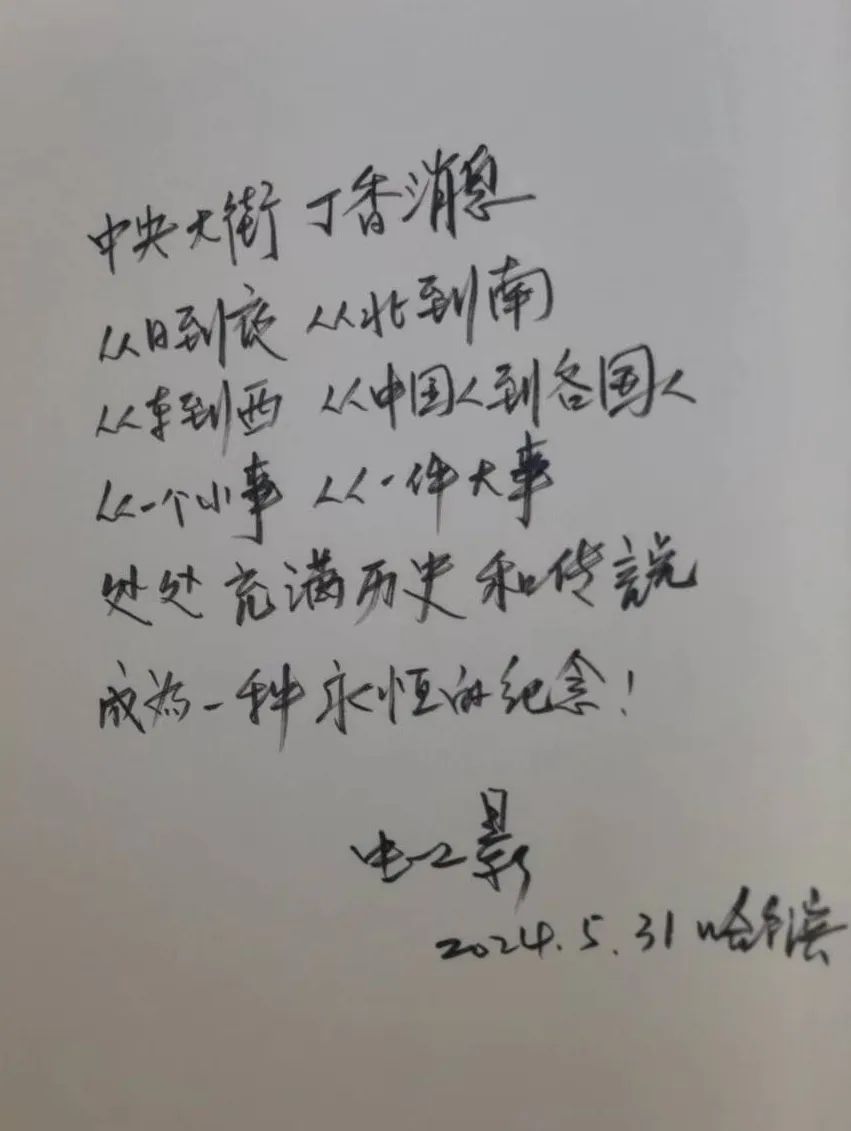 中央大街 丁香消息
从日到夜 从北到南
从东到西 从中国人到各国人
从一个小事 从一件大事
处处充满历史和传説
成为一种永恒的纪念！
2024.5.31 哈尔滨